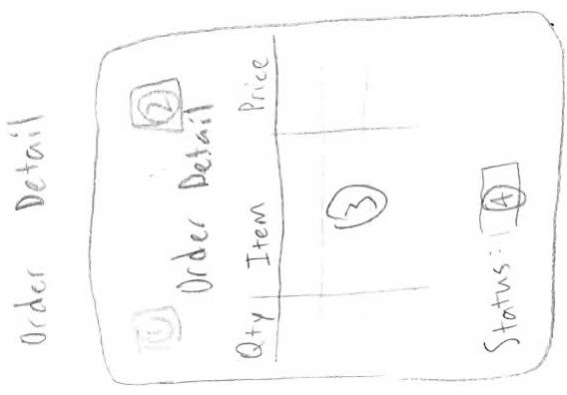 Order Detail
1 2
Order Detail
Qty Item Price
3
Status: 4